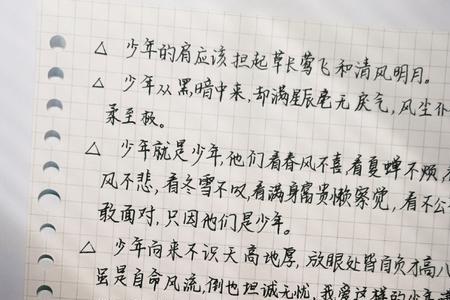 △ 少年的肩应该担起草长莺飞和清风明月。
△ 少年从黑暗中来,却满星辰毫无戾气,风尘仆
柔至极。
△ 少年就是少年,他们看春风不喜,看夏蝉不烦,
风不悲,看冬雪不叹,看满身富贵懒察觉,看不公
敢面对,只因他们是少年。
△ 少年向来不识天高地厚,放眼处皆自负才高八
虽是自命风流,倒也坦诚无忧,我爱这样的少年